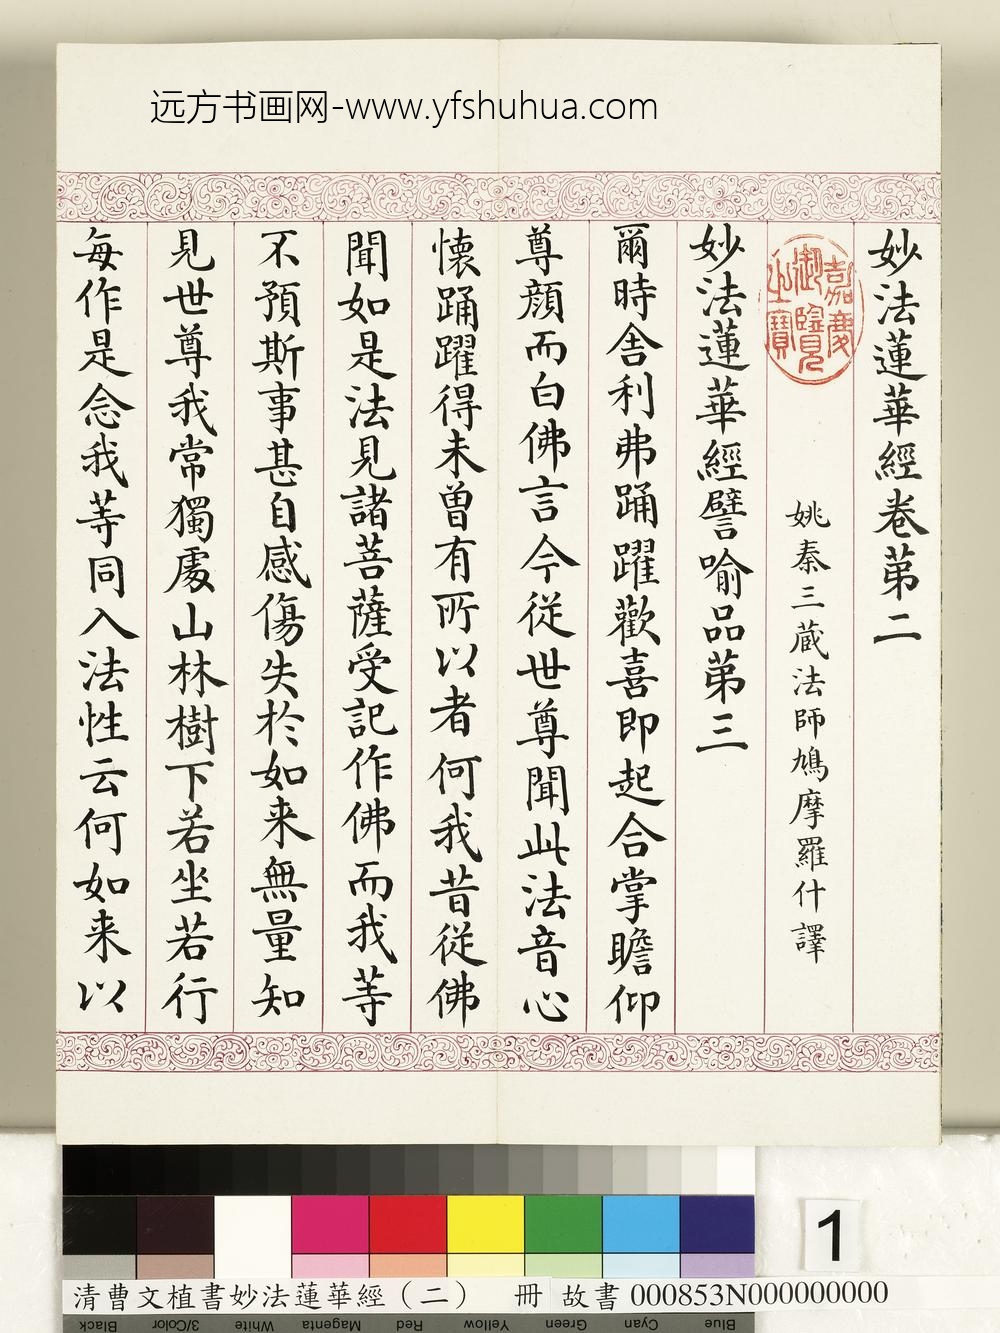 远方书画网-www.yfshuhua.com
妙法蓮華經卷苐二
嘉慶御覽之寶
姚秦三藏法師鳩摩羅什譯
妙法蓮華經譬喻品苐三
爾時舍利弗踊躍歡喜即起合掌瞻仰
尊顔而白佛言今從世尊聞此法音心
懐踊躍得未曾有所以者何我昔從佛
聞如是法見諸菩薩受記作佛而我等
不預斯事甚自感傷失於如来無量知
見世尊我常獨處山林樹下若坐若行
每作是念我等同入法性云何如来以
1
清曹文植書妙法蓮華經（二） 冊 故書 000853N000000000
Black 3/Color White Magenta Red Yellow Green Cyan Blue